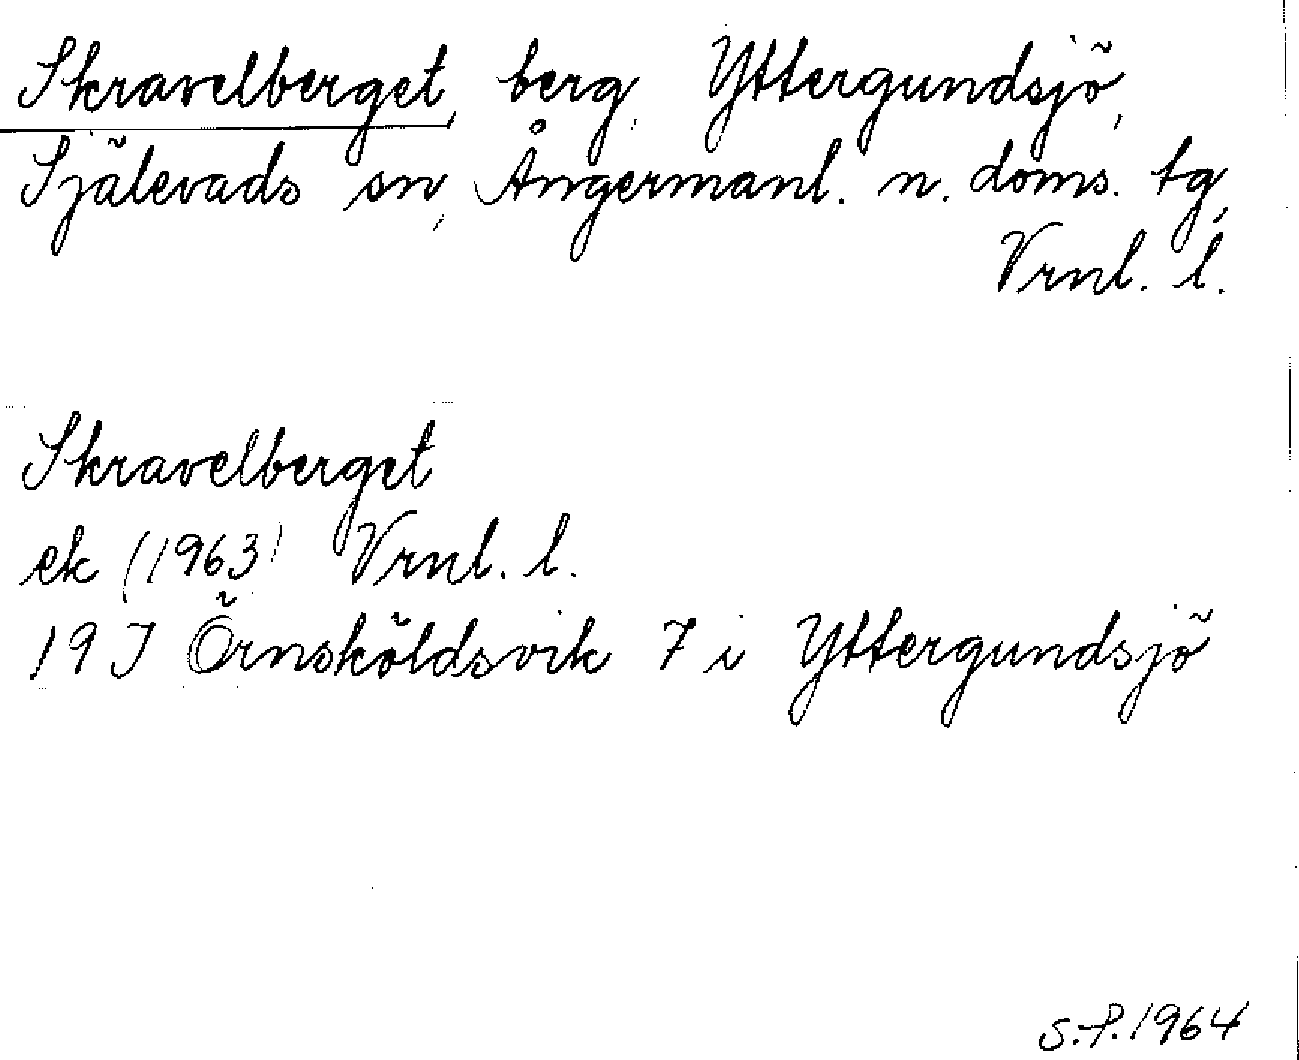 Skravelberget, berg, Yttergundsjö,
Själevads sn, Ångermanl. n. doms. tg,
Vrnl. l.
Skravelberget
ek (1963) Vrnl. l.
19 J Örnsköldsvik 7 i Yttergundsjö
S.P. 1964